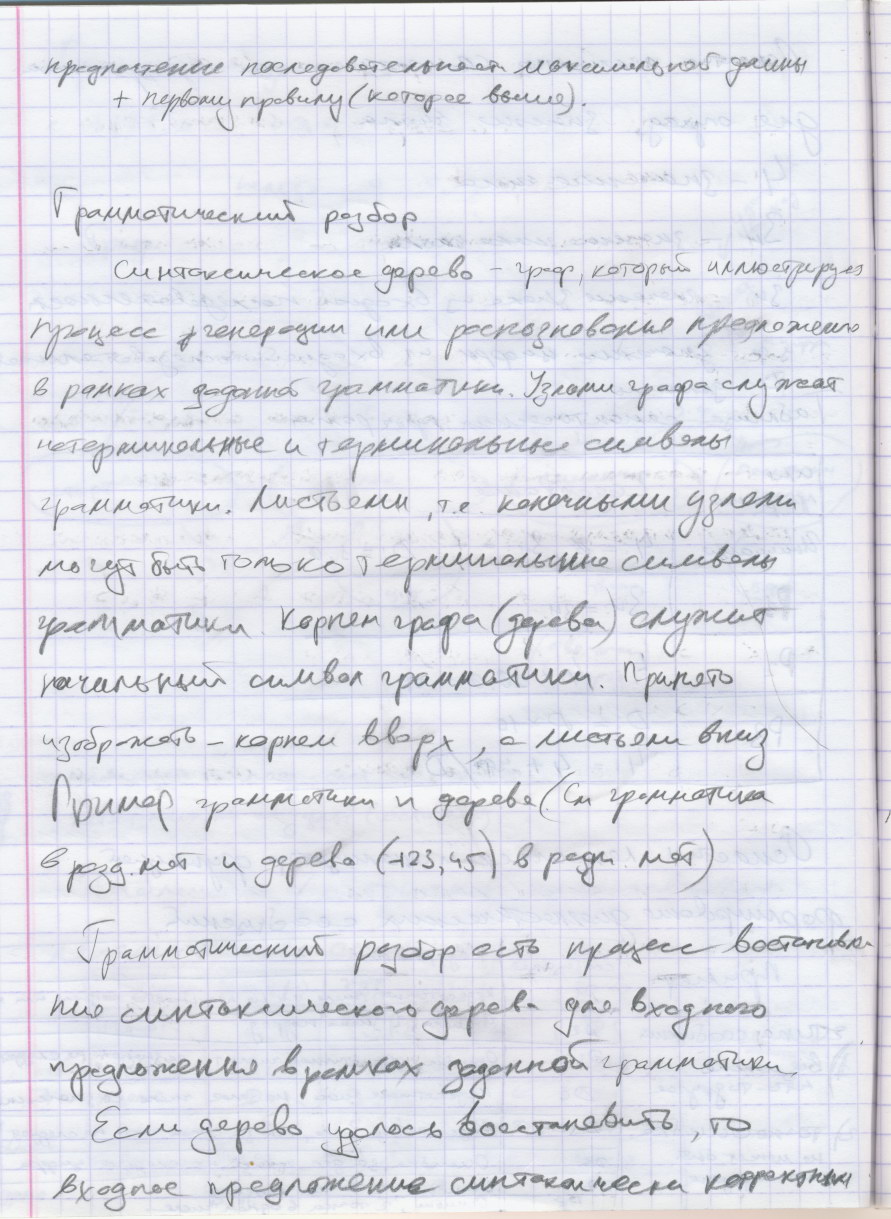 предпочтение последовательности максимальной длины
+ первому правилу (которое выше).
Грамматический разбор
Синтаксическое дерево – граф, который иллюстрирует
процесс генерации или распознования предложения
в рамках заданной грамматики. Узлами графа служат
нетерминальные и терминальные символы
грамматики. Листьями, т.е. конечными узлами
могут быть только терминальные символы
грамматики. Корнем графа (дерева) служит
начальный символ грамматики. Принято
изображать – корнем вверх, а листьями вниз
Пример грамматики и дерева (См грамматика
в разд. мат и дерево (+23,45) в разд. мат)
Грамматический разбор есть процесс востановле-
ние синтаксического дерева для входного
предложения в рамках заданной грамматики.
Если дерево удалось восстановить, то
входное предложение синтаксически корректным